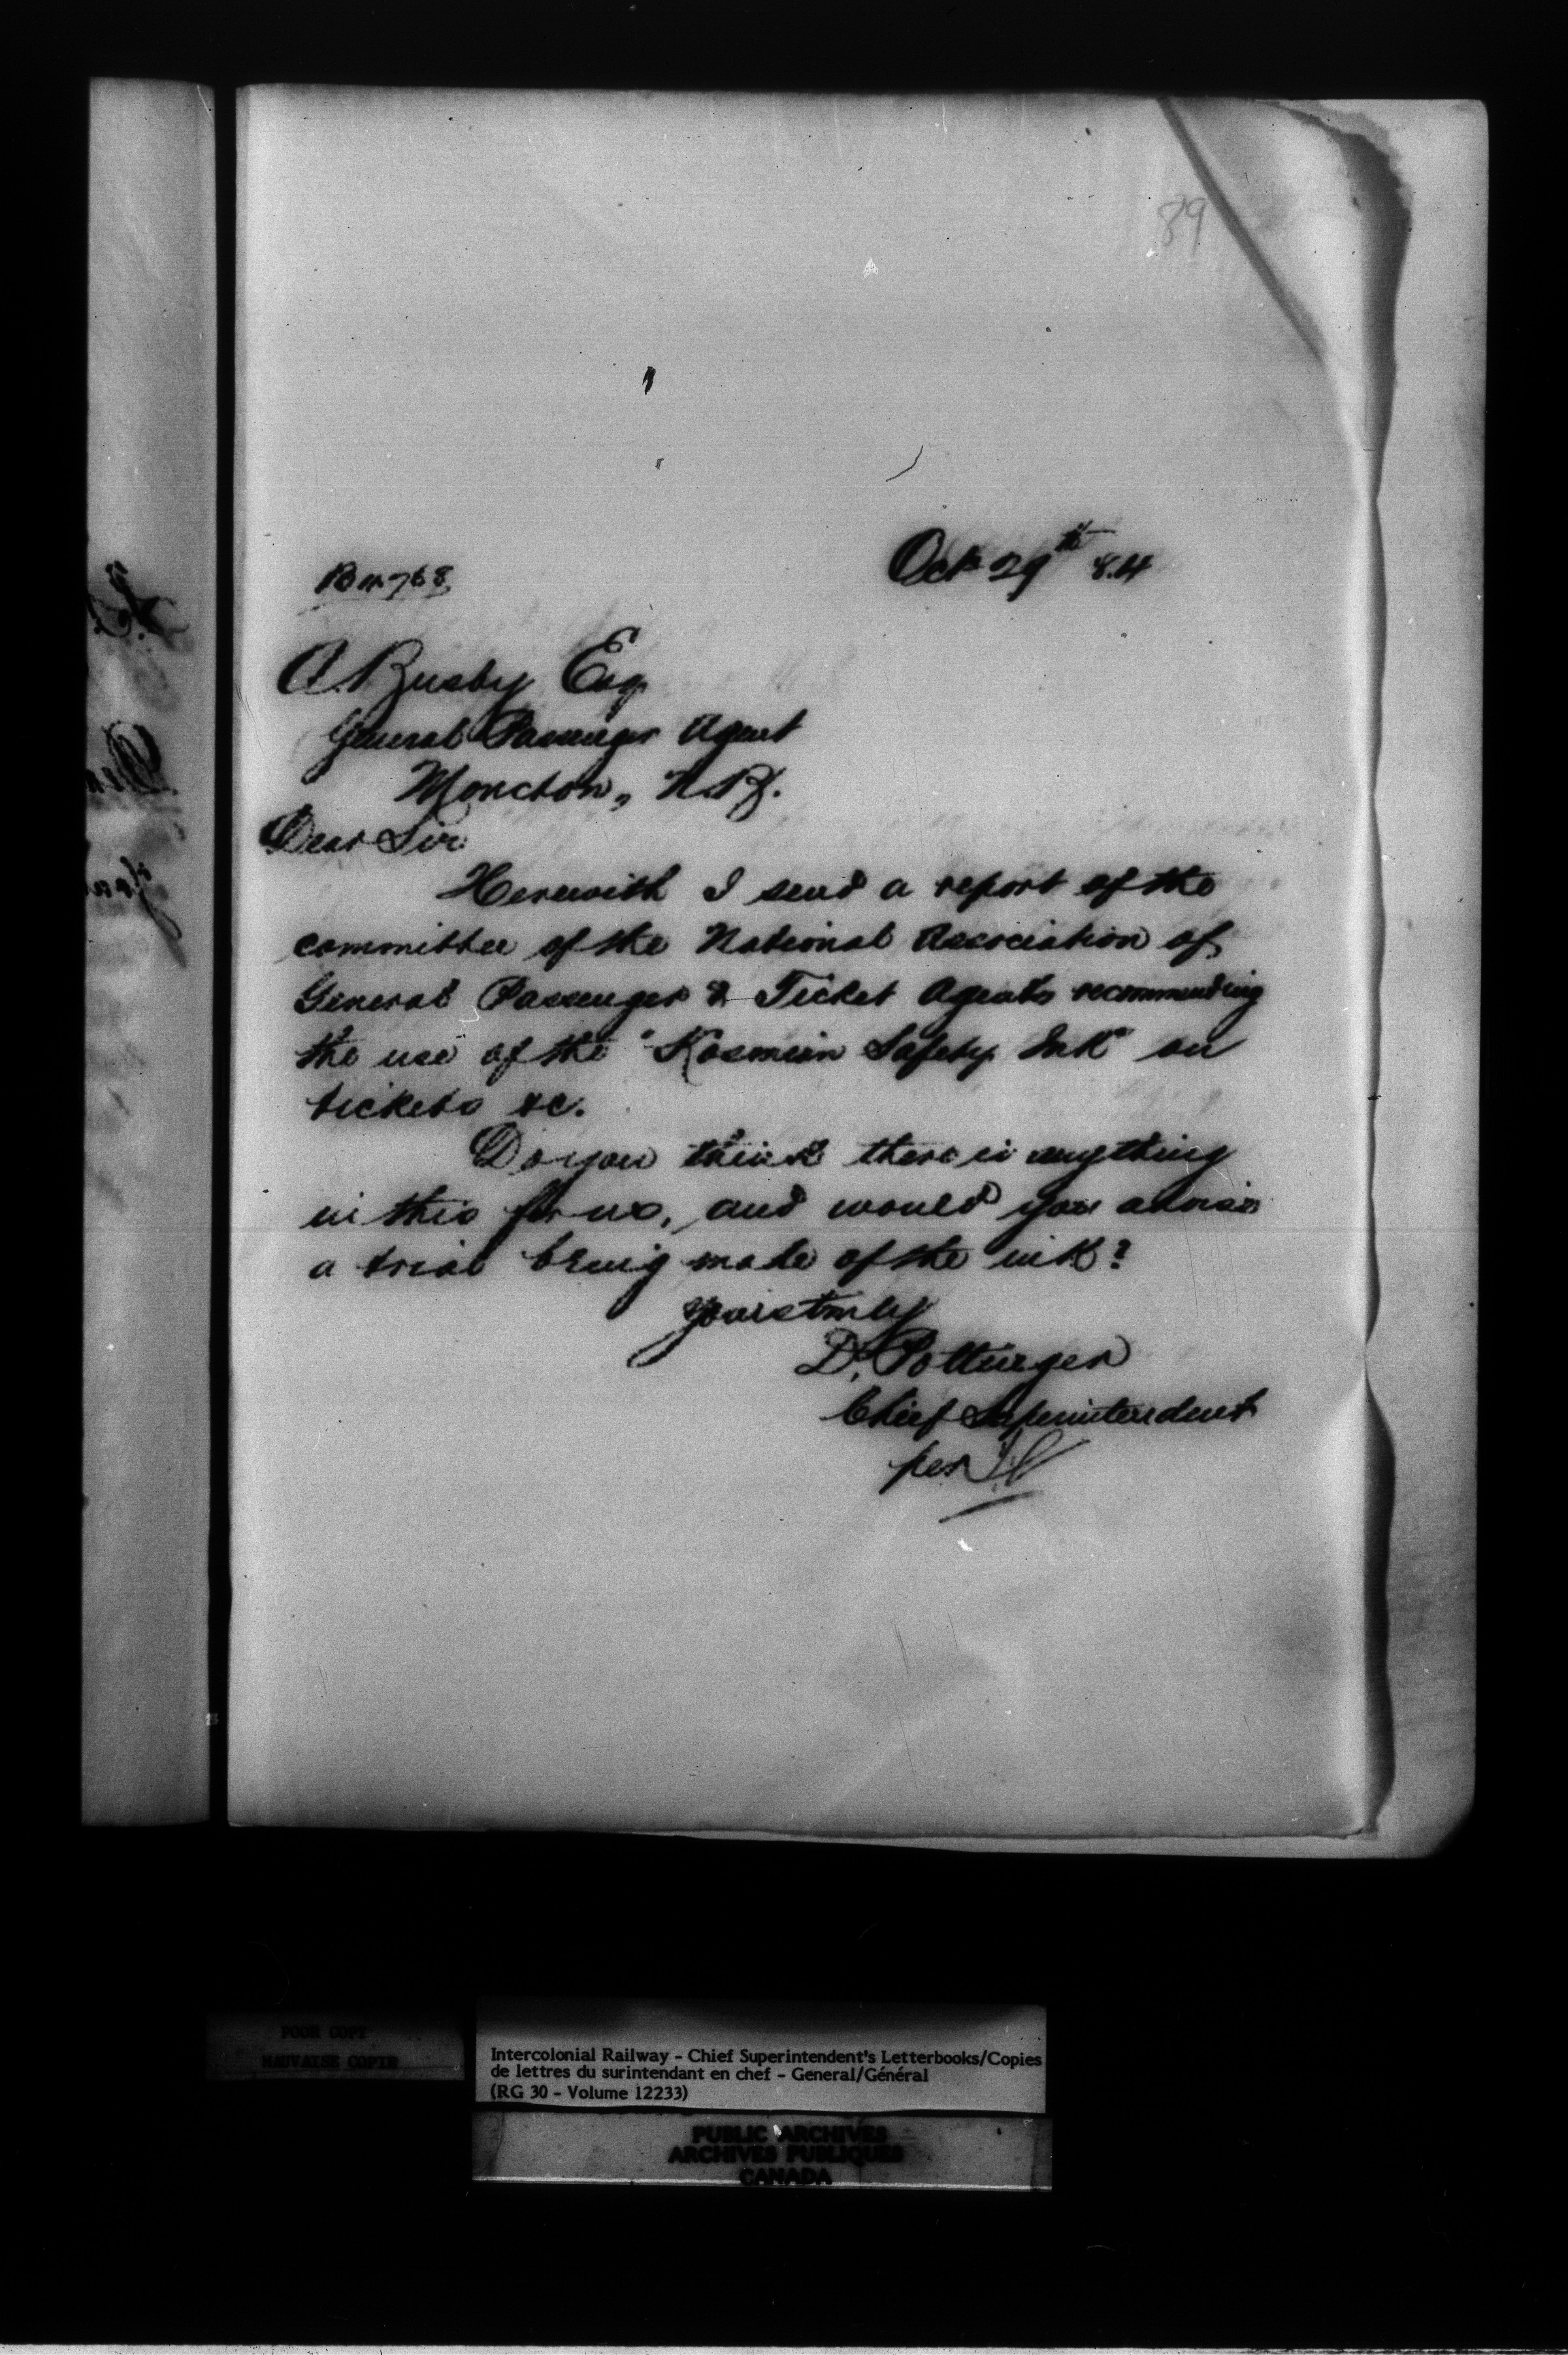 89
Oct 29th 84
A. Busby Esq
General Passenger Agent
Moncton, N.B.
Dear Sir
Herewith I send a report of the
committee of the National Association of
General Passenger & Ticket Agents recommending
the use of the "Kosmian Safety Ink" on
tickets &c.
Do you think there is anything
in this for us, and would you advise
a trial being made of the ink?
Yours truly
D. Pottinger
Chief Superintendent
per
POOR COPY
MAUVAISE COPIE
Intercolonial Railway - Chief Superintendent's Letterbooks/Copies
de lettres du surintendant en chef - General/Général
(RG 30 - Volume 12233)
PUBLIC ARCHIVES
ARCHIVES PUBLIQUES
CANADA